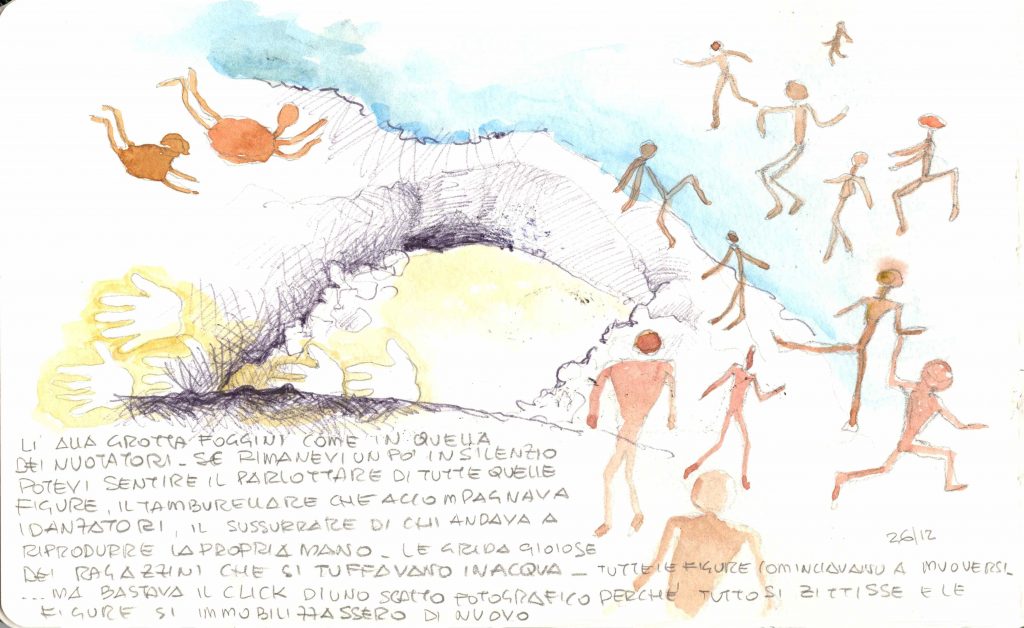 26/12
LI' ALLA GROTTA FOGGINI COME IN QUELLA
DEI NUOTATORI - SE RIMANEVI UN PO' IN SILENZIO
POTEVI SENTIRE IL PARLOTTARE DI TUTTE QUELLE
FIGURE, IL TAMBURELLARE CHE ACCOMPAGNAVA
I DANZATORI, IL SUSSURRARE DI CHI ANDAVA A
RIPRODURRE LA PROPRIA MANO - LE GRIDA GIOIOSE
DEI RAGAZZINI CHE SI TUFFAVANO IN ACQUA - TUTTE LE FIGURE COMINCIAVANO A MUOVERSI -
... MA BASTAVA IL CLICK DI UNO SCATTO FOTOGRAFICO PERCHE' TUTTO SI ZITTISSE E LE
FIGURE SI IMMOBILIZZASSERO DI NUOVO